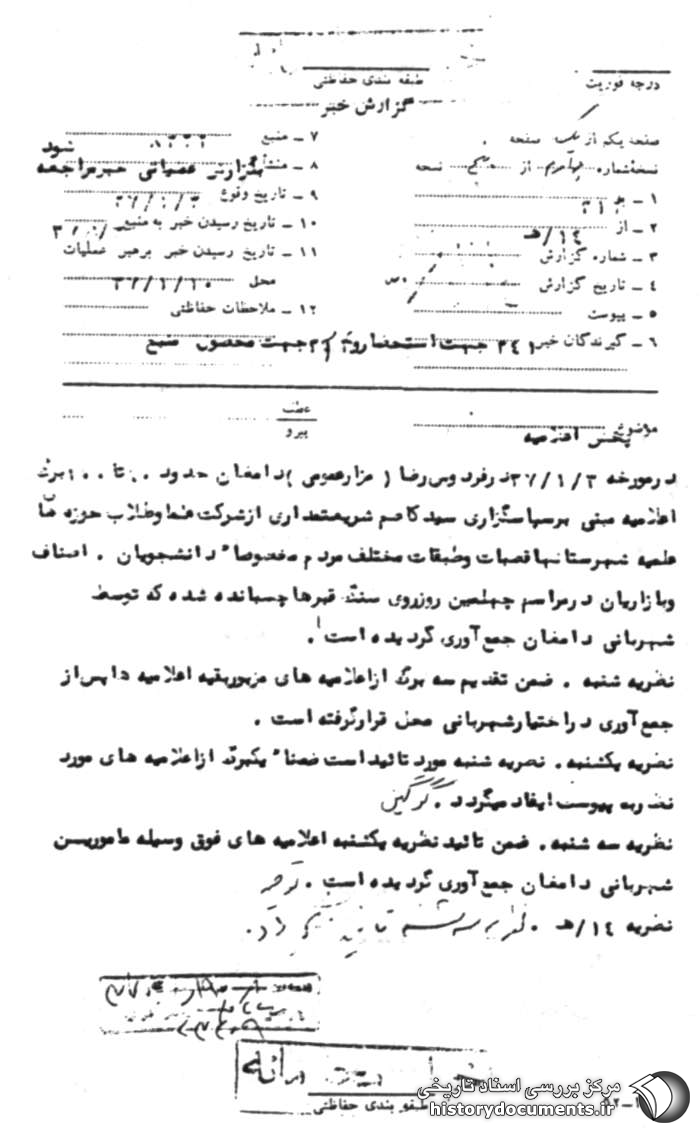 طبقه بندی حفاظتی
درجه فوریت
گزارش خبر
صفحه یکم از یک صفحه
نسخه شماره از نسخه
۱ ـ به ۳۱۲
۲ ـ از ۱۴/هـ
۳ ـ شماره گزارش
۴ ـ تاریخ گزارش
۵ ـ پیوست
۶ ـ گیرندگان خبر ۳۴۱ جهت استحضار و جهت محصول منبع
۷ ـ منبع
۸ ـ منشأ بگزارش عملیاتی خبر مراجعه شود
۹ ـ تاریخ وقوع ۳۷/۱/۳
۱۰ ـ تاریخ رسیدن خبر به منبع
۱۱ ـ تاریخ رسیدن خبر برهبر عملیات
محل ۳۷/۱/۲۰
۱۲ ـ ملاحظات حفاظتی
موضوع پخش اعلامیه
عطف
پیرو
درمورخه ۳۷/۱/۳ در فردوس رضا ( مزار عمومی ) دامغان حدود تا برگ
اعلامیه مبنی بر سپاسگزاری سید کاظم شریعتمداری از شرکت علما وطلاب حوزه ها
علمیه شهرستانها قصبات وطبقات مختلف مردم مخصوصا" دانشجویان . اصناف
وبازاریان درمراسم چهلمین روز روی سنگ قبرها چسبانده شده که توسط
شهربانی دامغان جمع آوری گردیده است .
نظریه شنبه . ضمن تقدیم سه برگ ازاعلامیه های مزبور بقیه اعلامیه ها پس از
جمع آوری دراختیار شهربانی محل قرارگرفته است .
نظریه یکشنبه . نظریه شنبه مورد تائید است ضمنا" یکبرگ ازاعلامیه های مورد
نظر به پیوست ایفاد میگردد .
نظریه سه شنبه . ضمن تائید نظریه یکشنبه اعلامیه های فوق وسیله مامورین
شهربانی دامغان جمع آوری گردیده است .
نظریه ۱۴/هـ . نظریه سه شنبه تائید میگردد .
طبقه بندی حفاظتی
مرکز بررسی اسناد تاریخی
historydocuments.ir